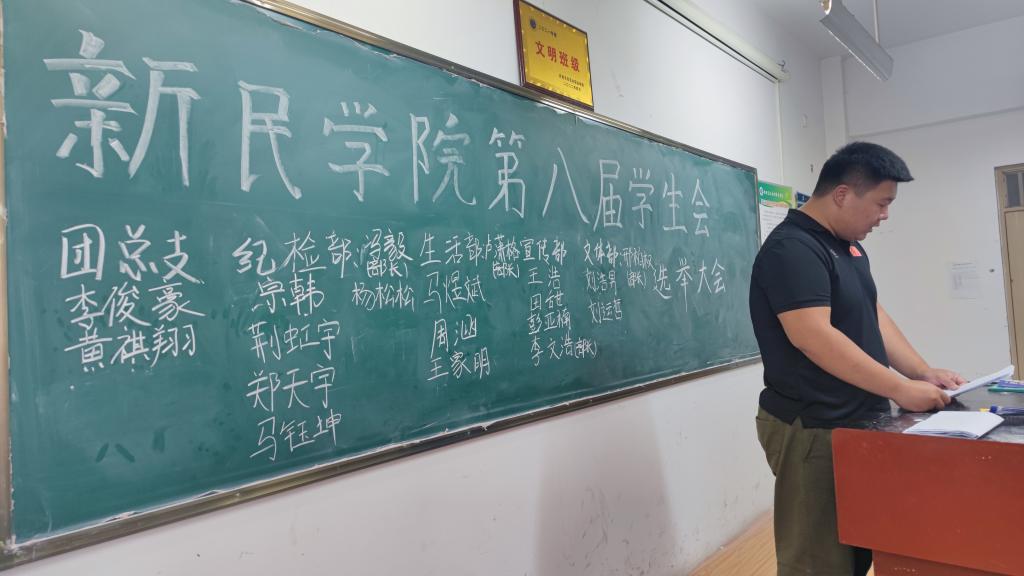 文明班级
新民学院第八届学生会
选举大会
团总支
李俊豪
黄祺翔
纪检部 冯毅
(部长)
宗韩 杨松松
荆虹宇
郑天宇
马钰坤
生活部 卢萧榕
(部长)
马煜斌
周涵
王家明
宣传部
王浩
彭亚楠
李文浩(部长)
文体部
刘浩男
刘运哲